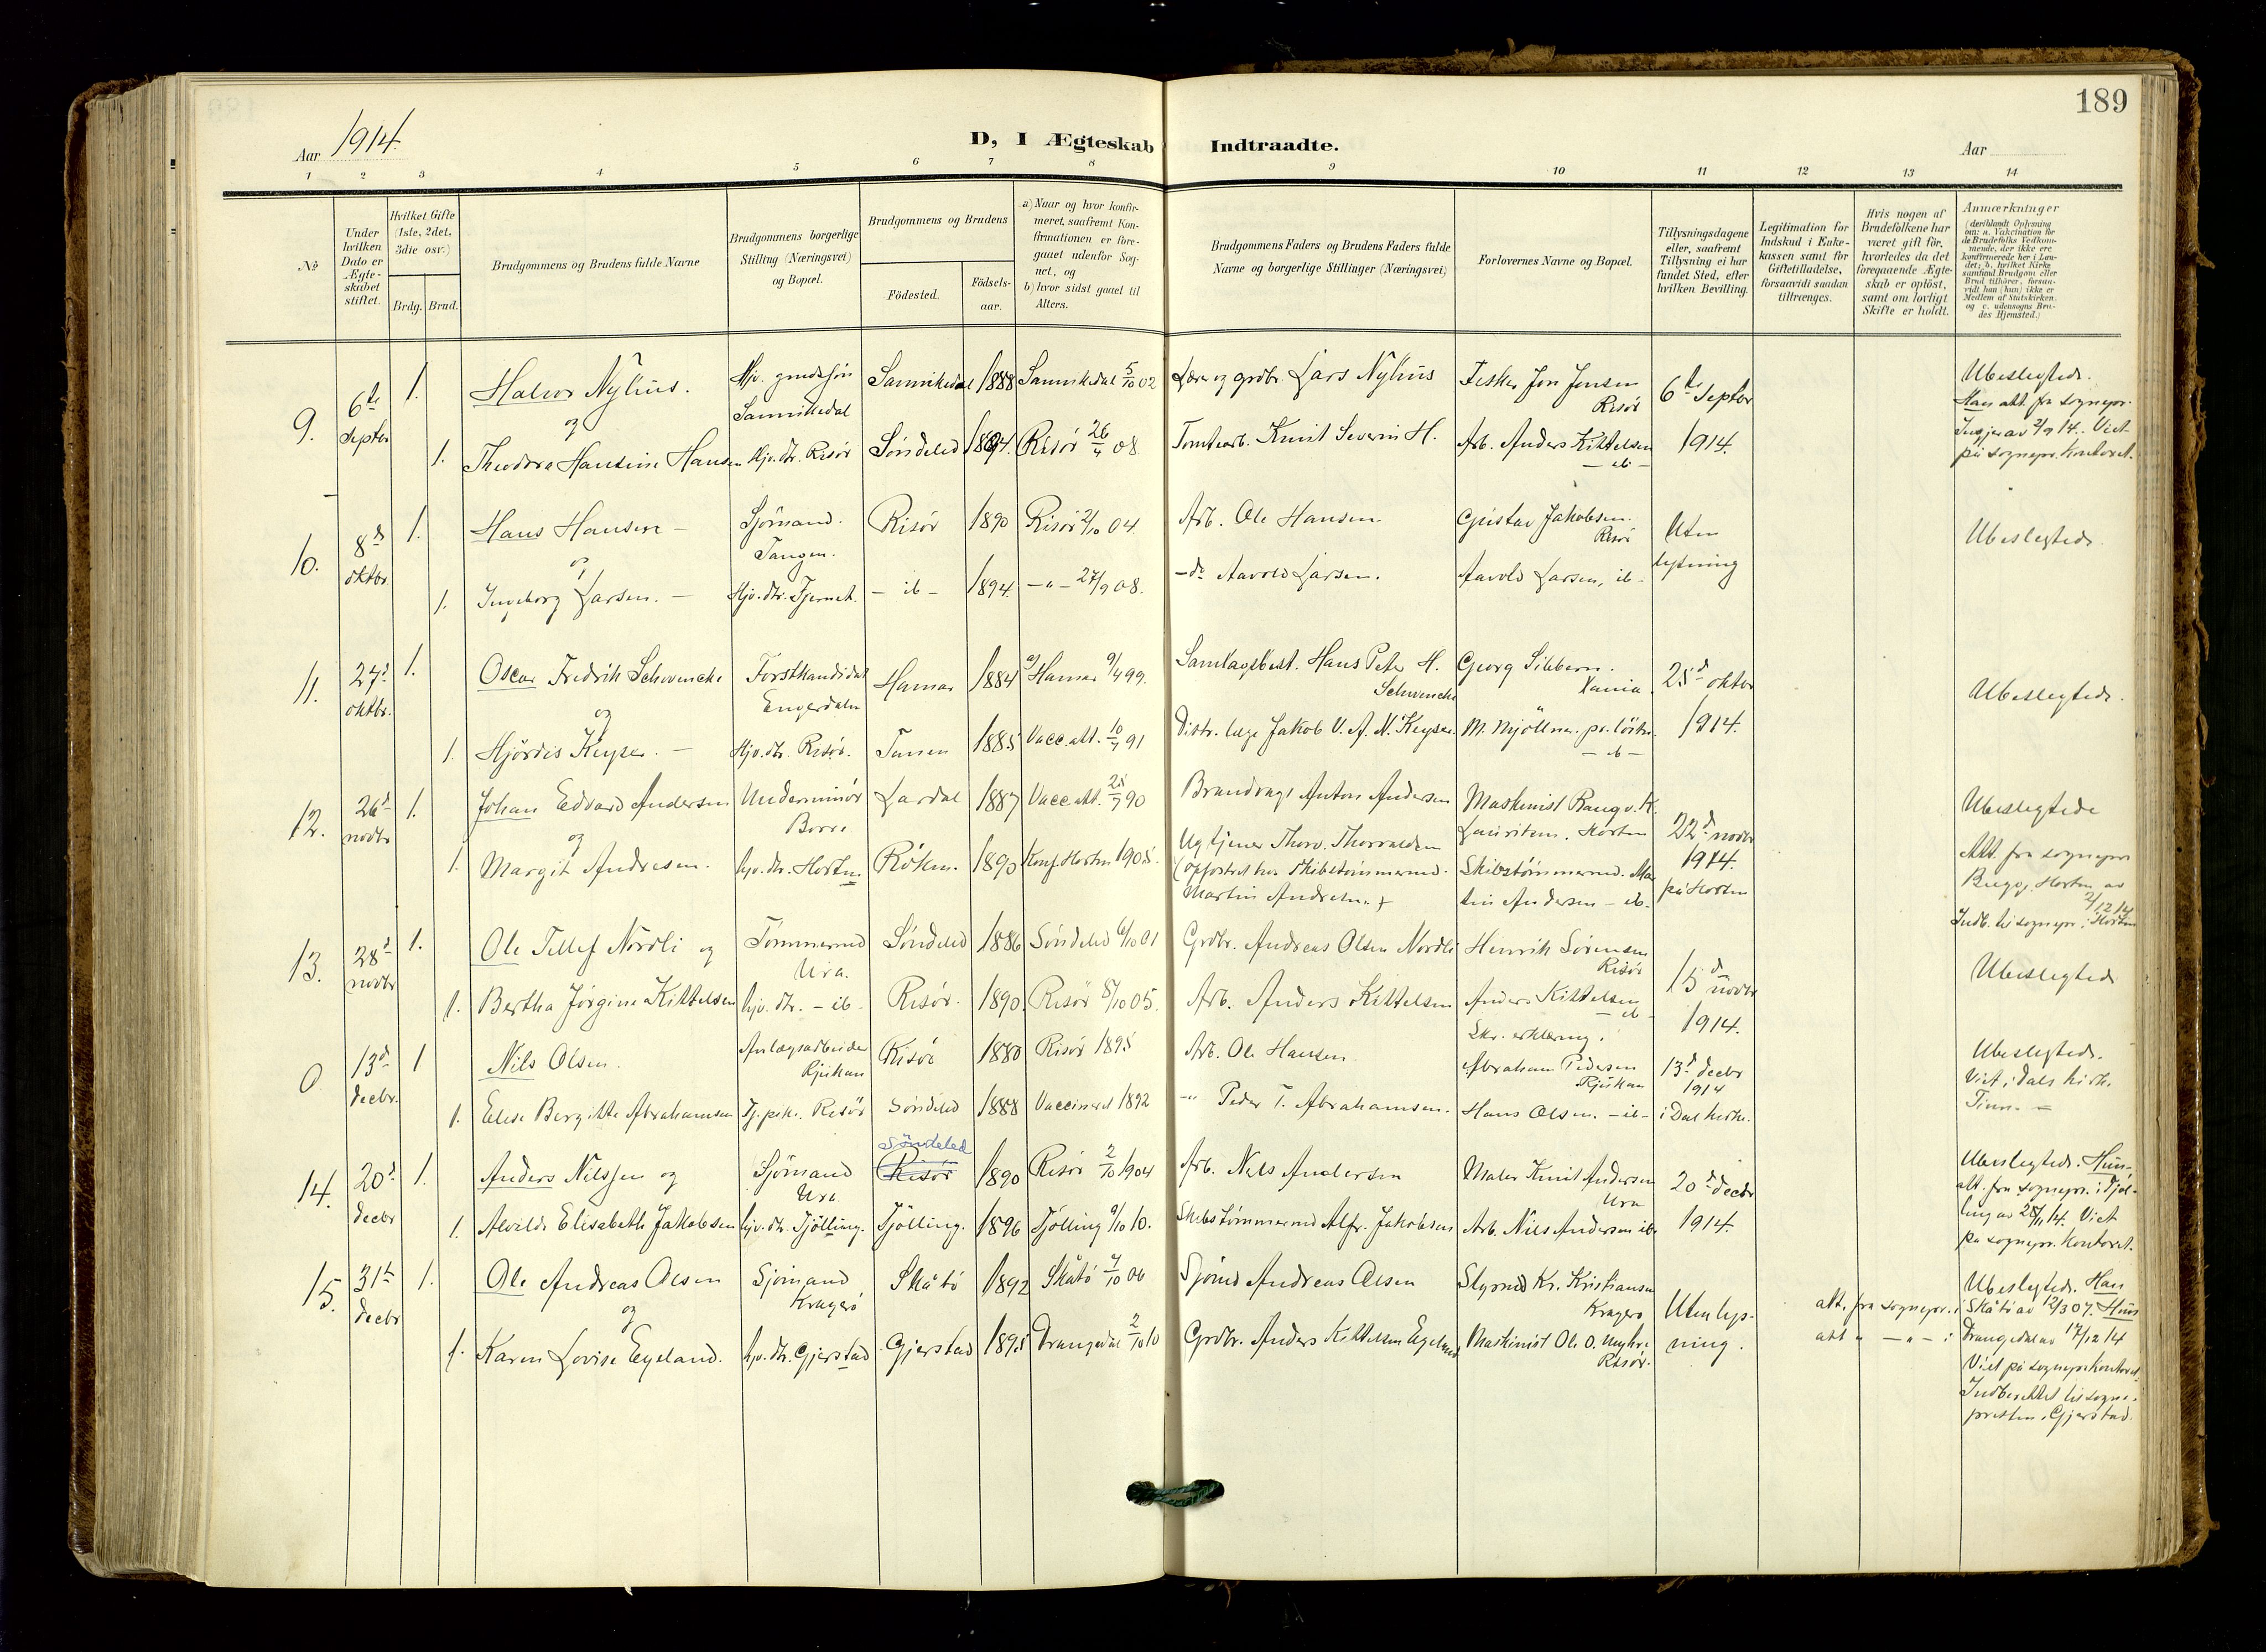 189
Aar 1914.
D, I Ægteskab Indtraadte.
Aar
1 2 3 4 5 6 7 8 9 10 11 12 13 14
No
Under hvilken Dato er Ægteskabet stiftet.
Hvilket Gifte (1ste, 2det, 3die osv.)
Brdg. Brud.
Brudgommens og Brudens fulde Navne
Brudgommens borgerlige Stilling (Næringsvei) og Bopæl.
Brudgommens og Brudens
Födested.
Födsels-aar.
a) Naar og hvor konfir-
meret, saafremt Kon-
firmationen er fore-
gaaet udenfor Sog-
net, og
b) hvor sidst gaaet til
Alters.
Brudgommens Faders og Brudens Faders fulde
Navne og borgerlige Stillinger (Næringsvei)
Forlovernes Navne og Bopæl.
Tillysningsdagene
eller, saafremt
Tillysning ei har
fundet Sted, efter
hvilken Bevilling.
Legitimation for
Indskud i Enke-
kassen samt for
Giftetilladelse,
forsaavidt saadan
tiltrænges.
Hvis nogen af
Brudefolkene har
været gift för,
hvorledes da det
foregaaende Ægte-
skab er oplöst,
samt om lovligt
Skifte er holdt.
Anmærkninger
(deriblandt Oplysning
om: a. Vakcination for
de Brudefolks Vedkom-
mende, der ikke ere
konfirmerede her i Lan-
det; b. hvilket Kirke
samfund Brudgom eller
Brud tilhörer, forsaa-
vidt han (hun) ikke er
Medlem af Statskirken,
og c. udensogns Bru-
des Hjemsted.)
9. 6te Septbr 1. Halvor Nylius. Hjv. grudssøn Sannikedal Sannikedal 1888 Sannikedal 5/10 02 Lærer og grdbr. Lars Nylius Fisker Jon Jensen Risör 6te Septbr 1914. Ubeslegtede.
Han att. fra sognepr.
av 2/9 14. Viet
på sognepr. Kontoret.
og
1. Theodora Hansine Hansen Hjv. dtr. Risör Søndeled Risör 26/4 08 Tomtearb. Knut Severin H. Arb. Anders Kittelsen - ib -
10. 8d oktbr. 1. Hans Hansen - Sjömand. Tangen. Risör 1890 Risör 2/10 04. Arb. Ole Hansen. Gustav Jakobsen. Risör Uten lysning Ubeslegtede.
og
1. Ingeborg Larsen. - Hjv. dtr. Tjernet. - ib - 1894. - " - 27/9 08. - do Aavold Larsen. Aavold Larsen, ib -
11. 27d oktbr. 1. Oscar Fredrik Schwencke Forstkandidat Engerdalen Hamar 1884 a) Hamar 9/4 99. Samlagsbest. Hans Peter H. Schwencke Georg Sibbern. Xania. 25d oktbr 1914. Ubeslegtede.
og
1. Hjördis Keyser. - Hjv. dtr. Risör. Tanen 1885 Vacc. att. 10/7 91 Distr. læge Jakob V. A. N. Keyser M. Mjöllner. pr. löitn. - ib -
12. 26d novbr 1. Johan Edvard Andersen Underminør Borre Lardal 1887 Vacc. att. 25/7 90 Brandvagt Anton Andersen Maskinist Rangv. K. Lauritsen. Horten 22d novbr 1914. på Horten Ubeslegtede
og
1. Margit Andresen. hjv. dtr. Horten Röken. 1890 Konf. Horten 1905. Ugtjener Thorv. Thorvaldsen
(opfostret hos Skibstömmermd.
Martin Andresen. +
Skibstömmermd. Mar
tin Andersen - ib.
Att. fra sognepr
Bugge, Horten av
2/12 14.
Indb. til sognepr. i Horten
13. 28d novbr 1. Ole Tellef Nordli og Tömmermd Ura. Söndeled 1886 Söndeled 6/10 01 Grdbr. Andreas Olsen Nordli Henrik Sörensen Risör 15d novbr 1914. Ubeslegtede
1. Bertha Jörgine Kittelsen hjv. dtr. - ib - Risör. 1890. Risör 8/10 05. Arb. Anders Kittelsen Anders Kittelsen - ib -
Skr. erklæring.
0. 13d decbr. 1 Nils Olsen. Anlægsarbeider Rjukan Risör 1880 Risör 1895 Arb. Ole Hansen Abraham Pedersen Rjukan 13d decbr 1914 i Dal kirke. Ubeslegtede.
Viet i Dals kirk.
Tinn. -
1. Elise Bergitte Abrahamsen Tj. pike. Risör Söndeled 1888 Vaccineret 1892 - " Peder T. Abrahamsen. Hans Olsen. - ib -
14. 20d decbr 1. Anders Nilssen og Sjömand Ura Söndeled Risör 1890 Risör 2/10 1904 Arb. Nils Andersen Maler Knut Andersen Ura 20d decbr 1914. Ubeslegtede. Hun
att. fra sognepr. i Tjöl-
ling av 28/11 14. Viet
på sognepr. Kontoret.
1. Alvilde Elisabeth Jakobsen hjv. dtr. Tjölling. Tjölling. 1896 Tjölling 9/10 10. Skibstömmermd Alfr. Jakobsen Arb. Nils Andersen ib.
15. 31te decbr 1. Ole Andreas Olsen Sjömand Kragerö Skåtö 1892 Skåtö 7/10 06 Sjömd Andreas Olsen Styrmd Kr. Kristiansen Kragerö Uten lys-
ning. Ubeslegtede. Han
att. fra sognepr. i Skåtö av 12/3 07. Hun
att " - " - i Drangedal av 17/12 14
Viet på sognepr. kontoret.
Indberettet til sogne-
presten i Gjerstad.
og
1. Karen Lovise Egeland. hjv. dtr. Gjerstad Gjerstad 1895 Drangedal 2/10 10 Grdbr. Anders Kittelsen Egeland Maskinist Ole O. Myhre Risör.